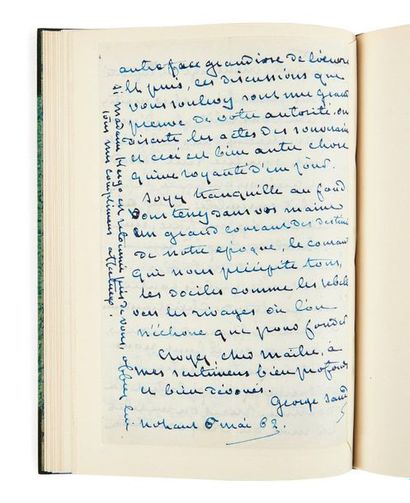 autre face grandiose de l'œuvre
Et puis, ces discussions que
vous soulevez sont une grande
preuve de votre autorité. on
discute les actes des souverains
et ceci est bien autre chose
qu'une royauté d'un jour.
Soyez tranquille au fond
Vous tenez dans vos mains
un grand courant des destinées
de notre époque, le courant
qui nous précipite tous,
les dociles comme les rebelles
vers les rivages où l'on
n'échoue que pour fonder
Croyez, cher maître, à
mes sentimens bien profonds
et bien dévoués.
George Sand
Nohant 6 mai 62.
Si madame Hugo est retournée près de vous, offrez lui
tous mes complimens affectueux.